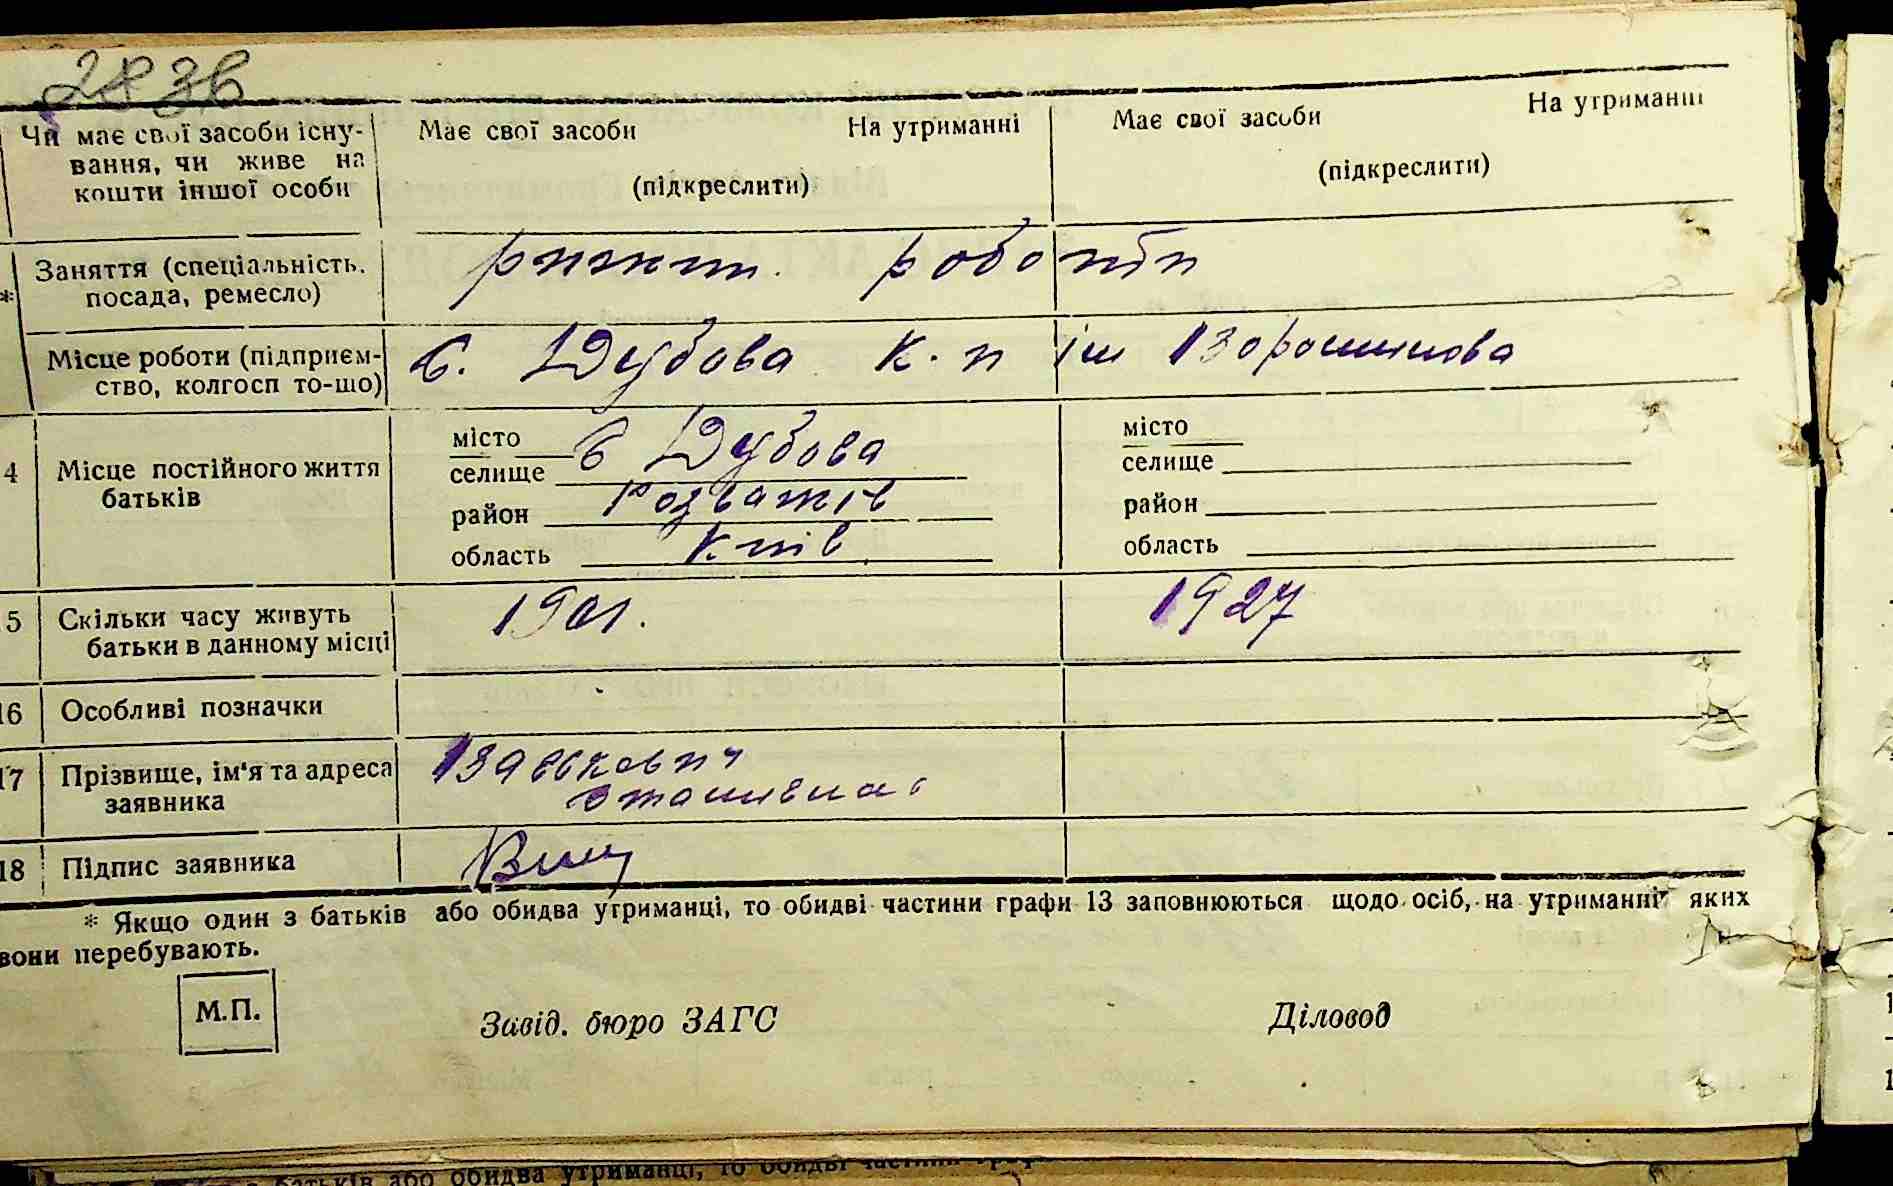 283в
Чи має свої засоби існу-
вання, чи живе на
кошти іншої особи
Має свої засоби На утриманні
(підкреслити)
Має свої засоби На утриманні
(підкреслити)
*
Заняття (спеціальність,
посада, ремесло)
робо
Місце роботи (підприєм-
ство, колгосп то-що)
с. Дубова к.п ім Ворошилова
4 Місце постійного життя
батьків
місто
селище с Дубова
район Розважів
область Київ
місто
селище
район
область
5 Скільки часу живуть
батьки в данному місці
1901.
1927
16 Особливі позначки
17 Прізвище, ім'я та адреса
заявника
18 Підпис заявника
* Якщо один з батьків або обидва утриманці, то обидві частини графи 13 заповнюються щодо осіб, на утриманні яких
вони перебувають.
М.П.
Завід. бюро ЗАГС
Діловод
батьків або обидва утриманці, то обидві частини граф